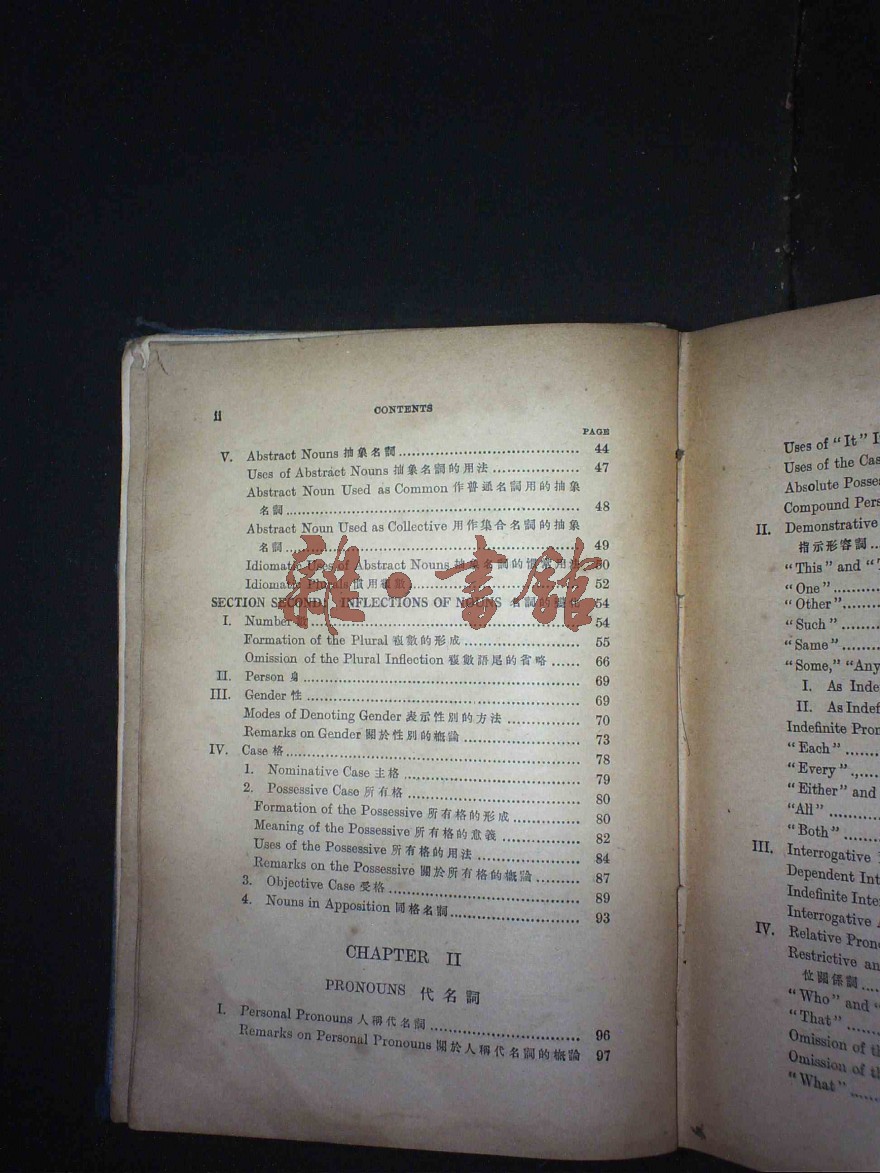 ii CONTENTS
PAGE
V. Abstract Nouns 抽象名詞 44
Uses of Abstract Nouns 抽象名詞的用法 47
Abstract Noun Used as Common 作普通名詞用的抽象
名詞 48
Abstract Noun Used as Collective 用作集合名詞的抽象
名詞 49
Idiomatic Uses of Abstract Nouns 抽象名詞的慣用法 50
Idiomatic Plurals 慣用複數 52
SECTION SECOND: INFLECTIONS OF NOUNS 名詞的變化 54
I. Number 數 54
Formation of the Plural 複數的形成 55
Omission of the Plural Inflection 複數語尾的省略 66
II. Person 身 69
III. Gender 性 69
Modes of Denoting Gender 表示性別的方法 70
Remarks on Gender 關於性別的概論 73
IV. Case 格 78
1. Nominative Case 主格 79
2. Possessive Case 所有格 80
Formation of the Possessive 所有格的形成 80
Meaning of the Possessive 所有格的意義 82
Uses of the Possessive 所有格的用法 84
Remarks on the Possessive 關於所有格的概論 87
3. Objective Case 受格 89
4. Nouns in Apposition 同格名詞 93
CHAPTER II
PRONOUNS 代名詞
I. Personal Pronouns 人稱代名詞 96
Remarks on Personal Pronouns 關於人稱代名詞的概論 97
雜·書館
Uses of "It" I
Uses of the Cas
Absolute Posse
Compound Pers
II. Demonstrative
指示形容詞
"This" and "T
"One"
"Other"
"Such"
"Same"
"Some," "Any
I. As Inde
II. As Indef
Indefinite Pron
"Each"
"Every"
"Either" and
"All"
"Both"
III. Interrogative
Dependent Int
Indefinite Inte
Interrogative
IV. Relative Prono
Restrictive an
位關係詞
"Who" and "
"That"
Omission of th
Omission of th
"What"